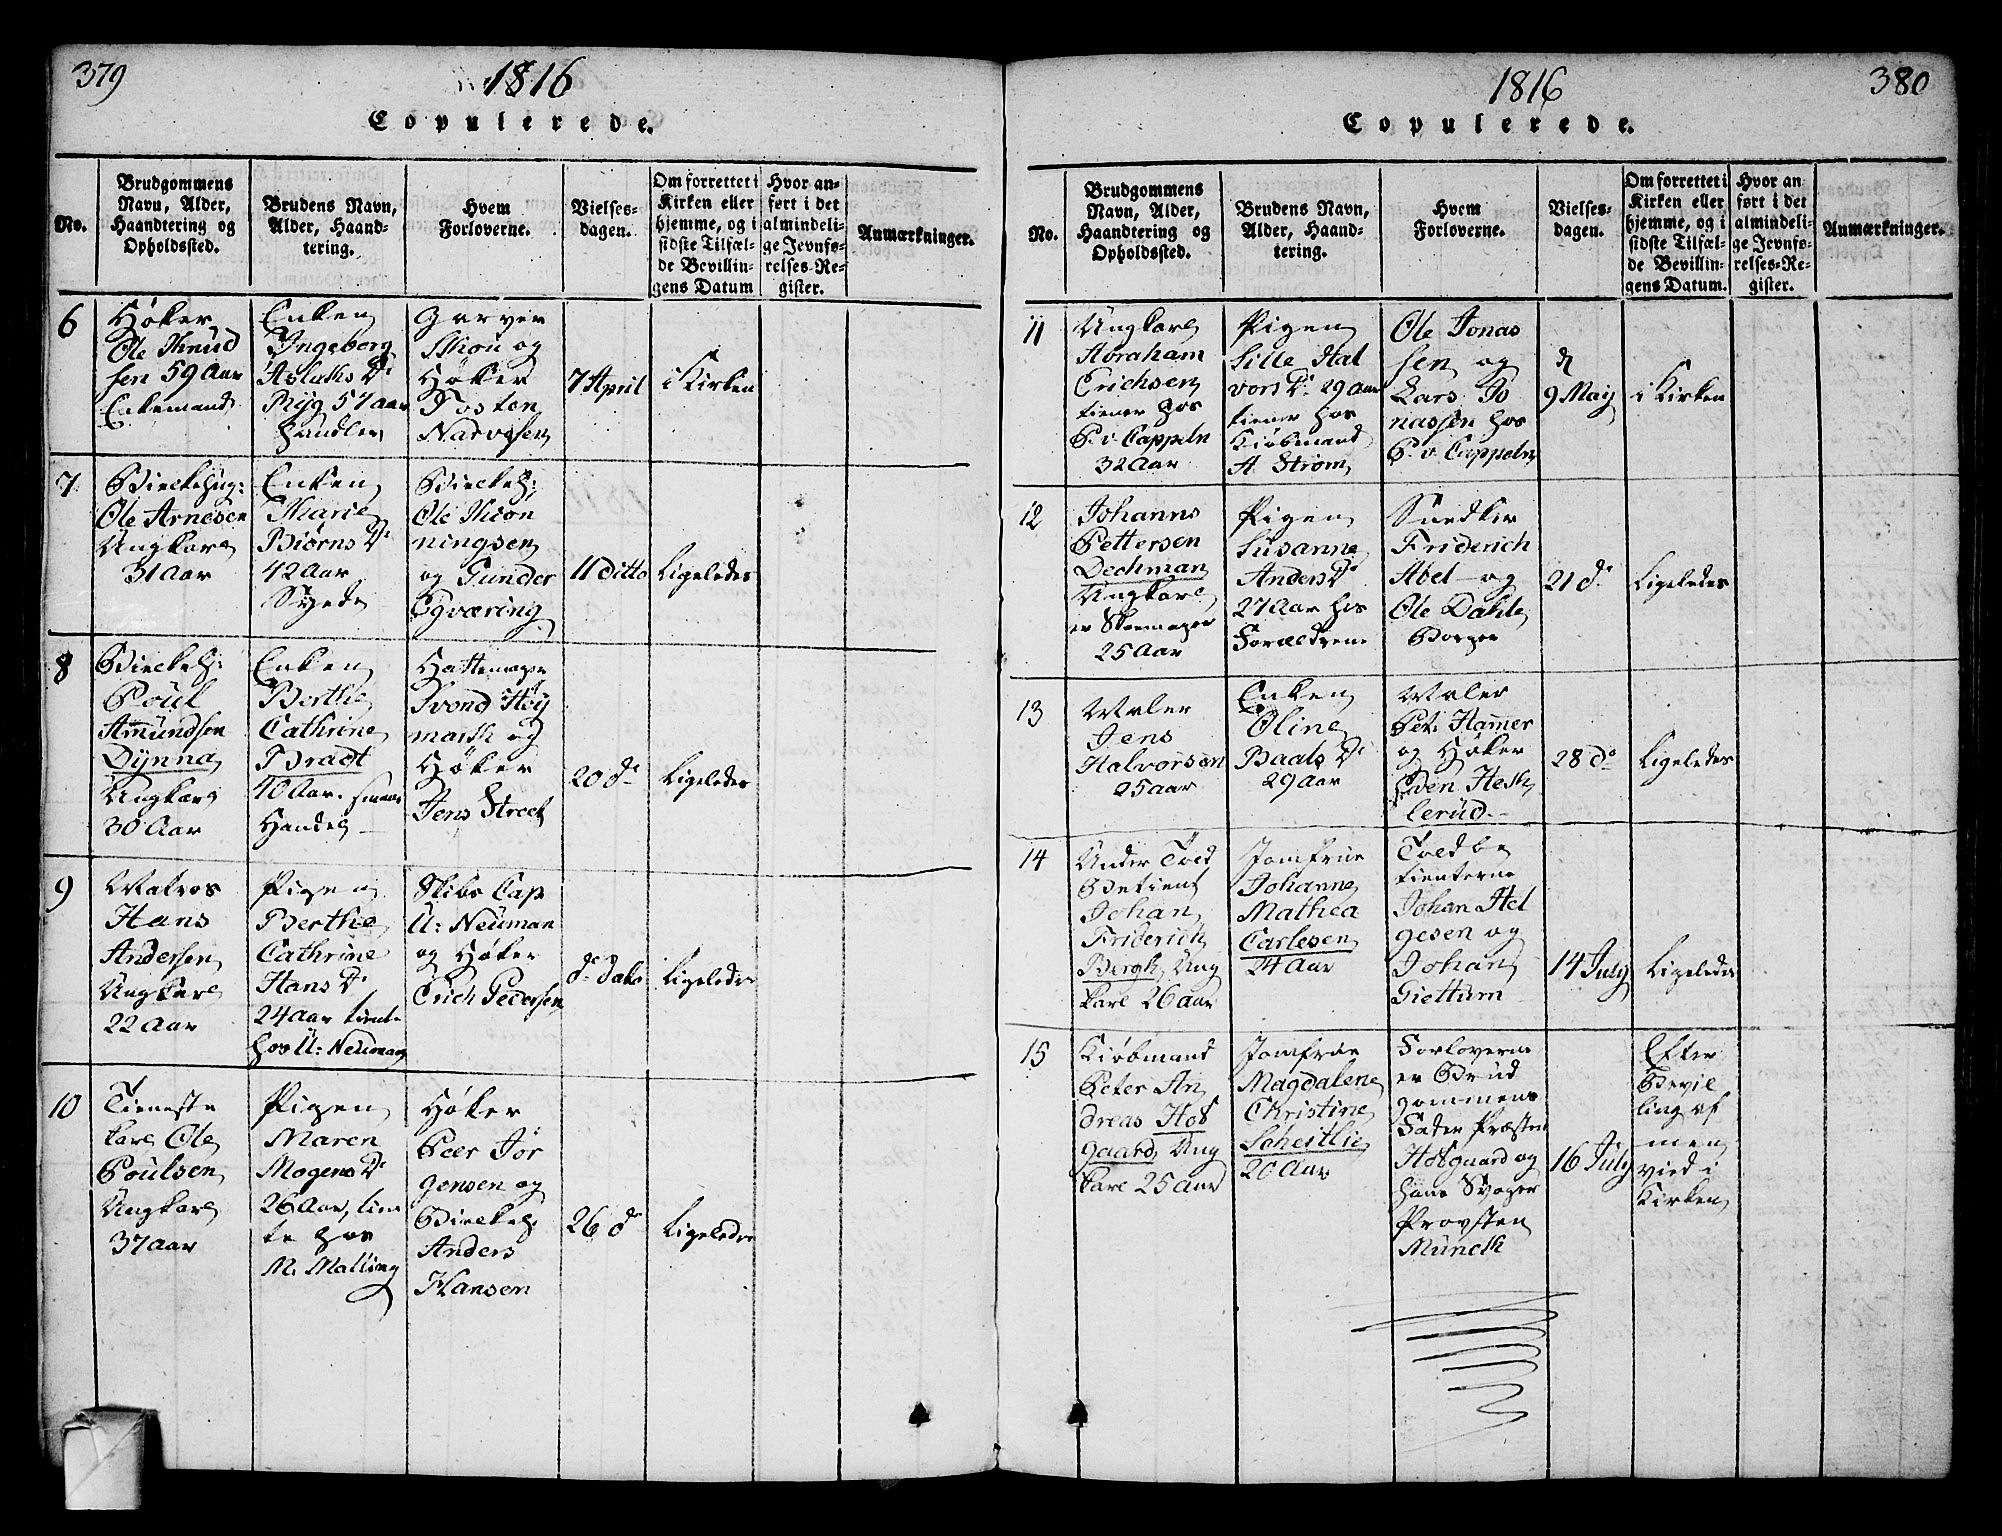 379
1816
Copulerede.
No.
Brudgommens
Navn, Alder,
Haandtering og
Opholdssted.
Brudens Navn,
Alder, Haand-
tering.
Hvem
Forloverne.
Vielses-
dagen.
Om forrettet i
Kirken eller
hjemme, og i
sidste Tilfæl-
de Bevillin-
gens Datum
Hvor an-
ført i det
almindeli-
ge Jevnfø-
relses-Re-
gister.
Anmærkninger.
6
Høker
Ole Knud
sen 59 Aar
Enkemand
Enken
Ingeborg
Aslaks D:
57 Aar
Garver
Skiøn og
Høker
Tosten
Narvesen
7 April
i Kirken
7
Ole Arnesen
Ungkarl
31 Aar
Enken
Marie
Biørns D:
42 Aar
Ole Kion
ningsen
og Gunder
Egværing
11 ditto
Ligeledes
8
Poul
Amundsen
Dynna
Ungkarl
30 Aar
Enken
Berthe
Cathrine
Bradt
40 Aar.
Handel
Hattemager
Svend Høy
mark og
Høker
Jens Street
20 d:
Ligeledes
9
Matros
Hans
Andersen
Ungkarl
22 Aar
Pigen
Berthe
Cathrine
Hans D:
24 Aar tient
hos U: Neuman
Skibs Cap
U: Neuman
og Høker
Erich Pedersen
d: Dato
Ligeledes
10
Tieneste
karl Ole
Poulsen
Ungkarl
37 Aar
Pigen
Maren
Mogens D:
26 Aar, tien
te hos
M. Malling
Høker
Peer Jør
gensen og
Anders
Hansen
26 d:
Ligeledes
1816
380
Copulerede.
No.
Brudgommens
Navn, Alder,
Haandtering og
Opholdssted.
Brudens Navn,
Alder, Haand-
tering.
Hvem
Forloverne.
Vielses-
dagen.
Om forrettet i
Kirken eller
hjemme, og i
sidste Tilfæl-
de Bevillin-
gens Datum.
Hvor an-
ført i det
almindeli-
ge Jevnfø-
relses-Re-
gister.
Anmærkninger.
11
Ungkarl
Abraham
Erichsen
tiener hos
P. v. Cappeln
32 Aar
Pigen
Sille Hal
vors D: 29 Aar
tiener hos
Kiøbmand
A. Strøm
Ole Jonas
sen og
Lars Jo
nassen hos
P. v. Cappeln
d
9 May
i Kirken
12
Johanns
Pettersen
Dechman
Ungkarl
er Skomager
25 Aar
Pigen
Susanne
Anders D:
27 Aar hos
Forældrene
Snedker
Friderich
Abel og
Ole Dahle
Borger
21 d:
Ligeledes
13
Maler
Jens
Halvorsen
25 Aar
Enken
Oline
Baals D:
29 Aar
Maler
Pet: Hamer
og Høker
Eden Hesk
lerud.
28 d:
Ligeledes
14
Under Told
Betient
Johan
Friderich
Bergh, Ung
karl 26 Aar
Jomfrue
Johanne
Mathea
Carlesen
24 Aar
Toldbe
tienterne
Johan Hel
gesen og
Johan
Giettum
14 July
Ligeledes
15
Kiøbmand
Peter An
dreas Hof
gaard, Ung
karl 25 Aar
Jomfrue
Magdalene
Christine
Scheitlie
20 Aar
Forloverne
er Brud
gommens
Fader Præsten
Hofgaard og
hans Svoger
Provsten
Munch
16 July
Efter
Bevil
ling af
men
vied i
Kirken